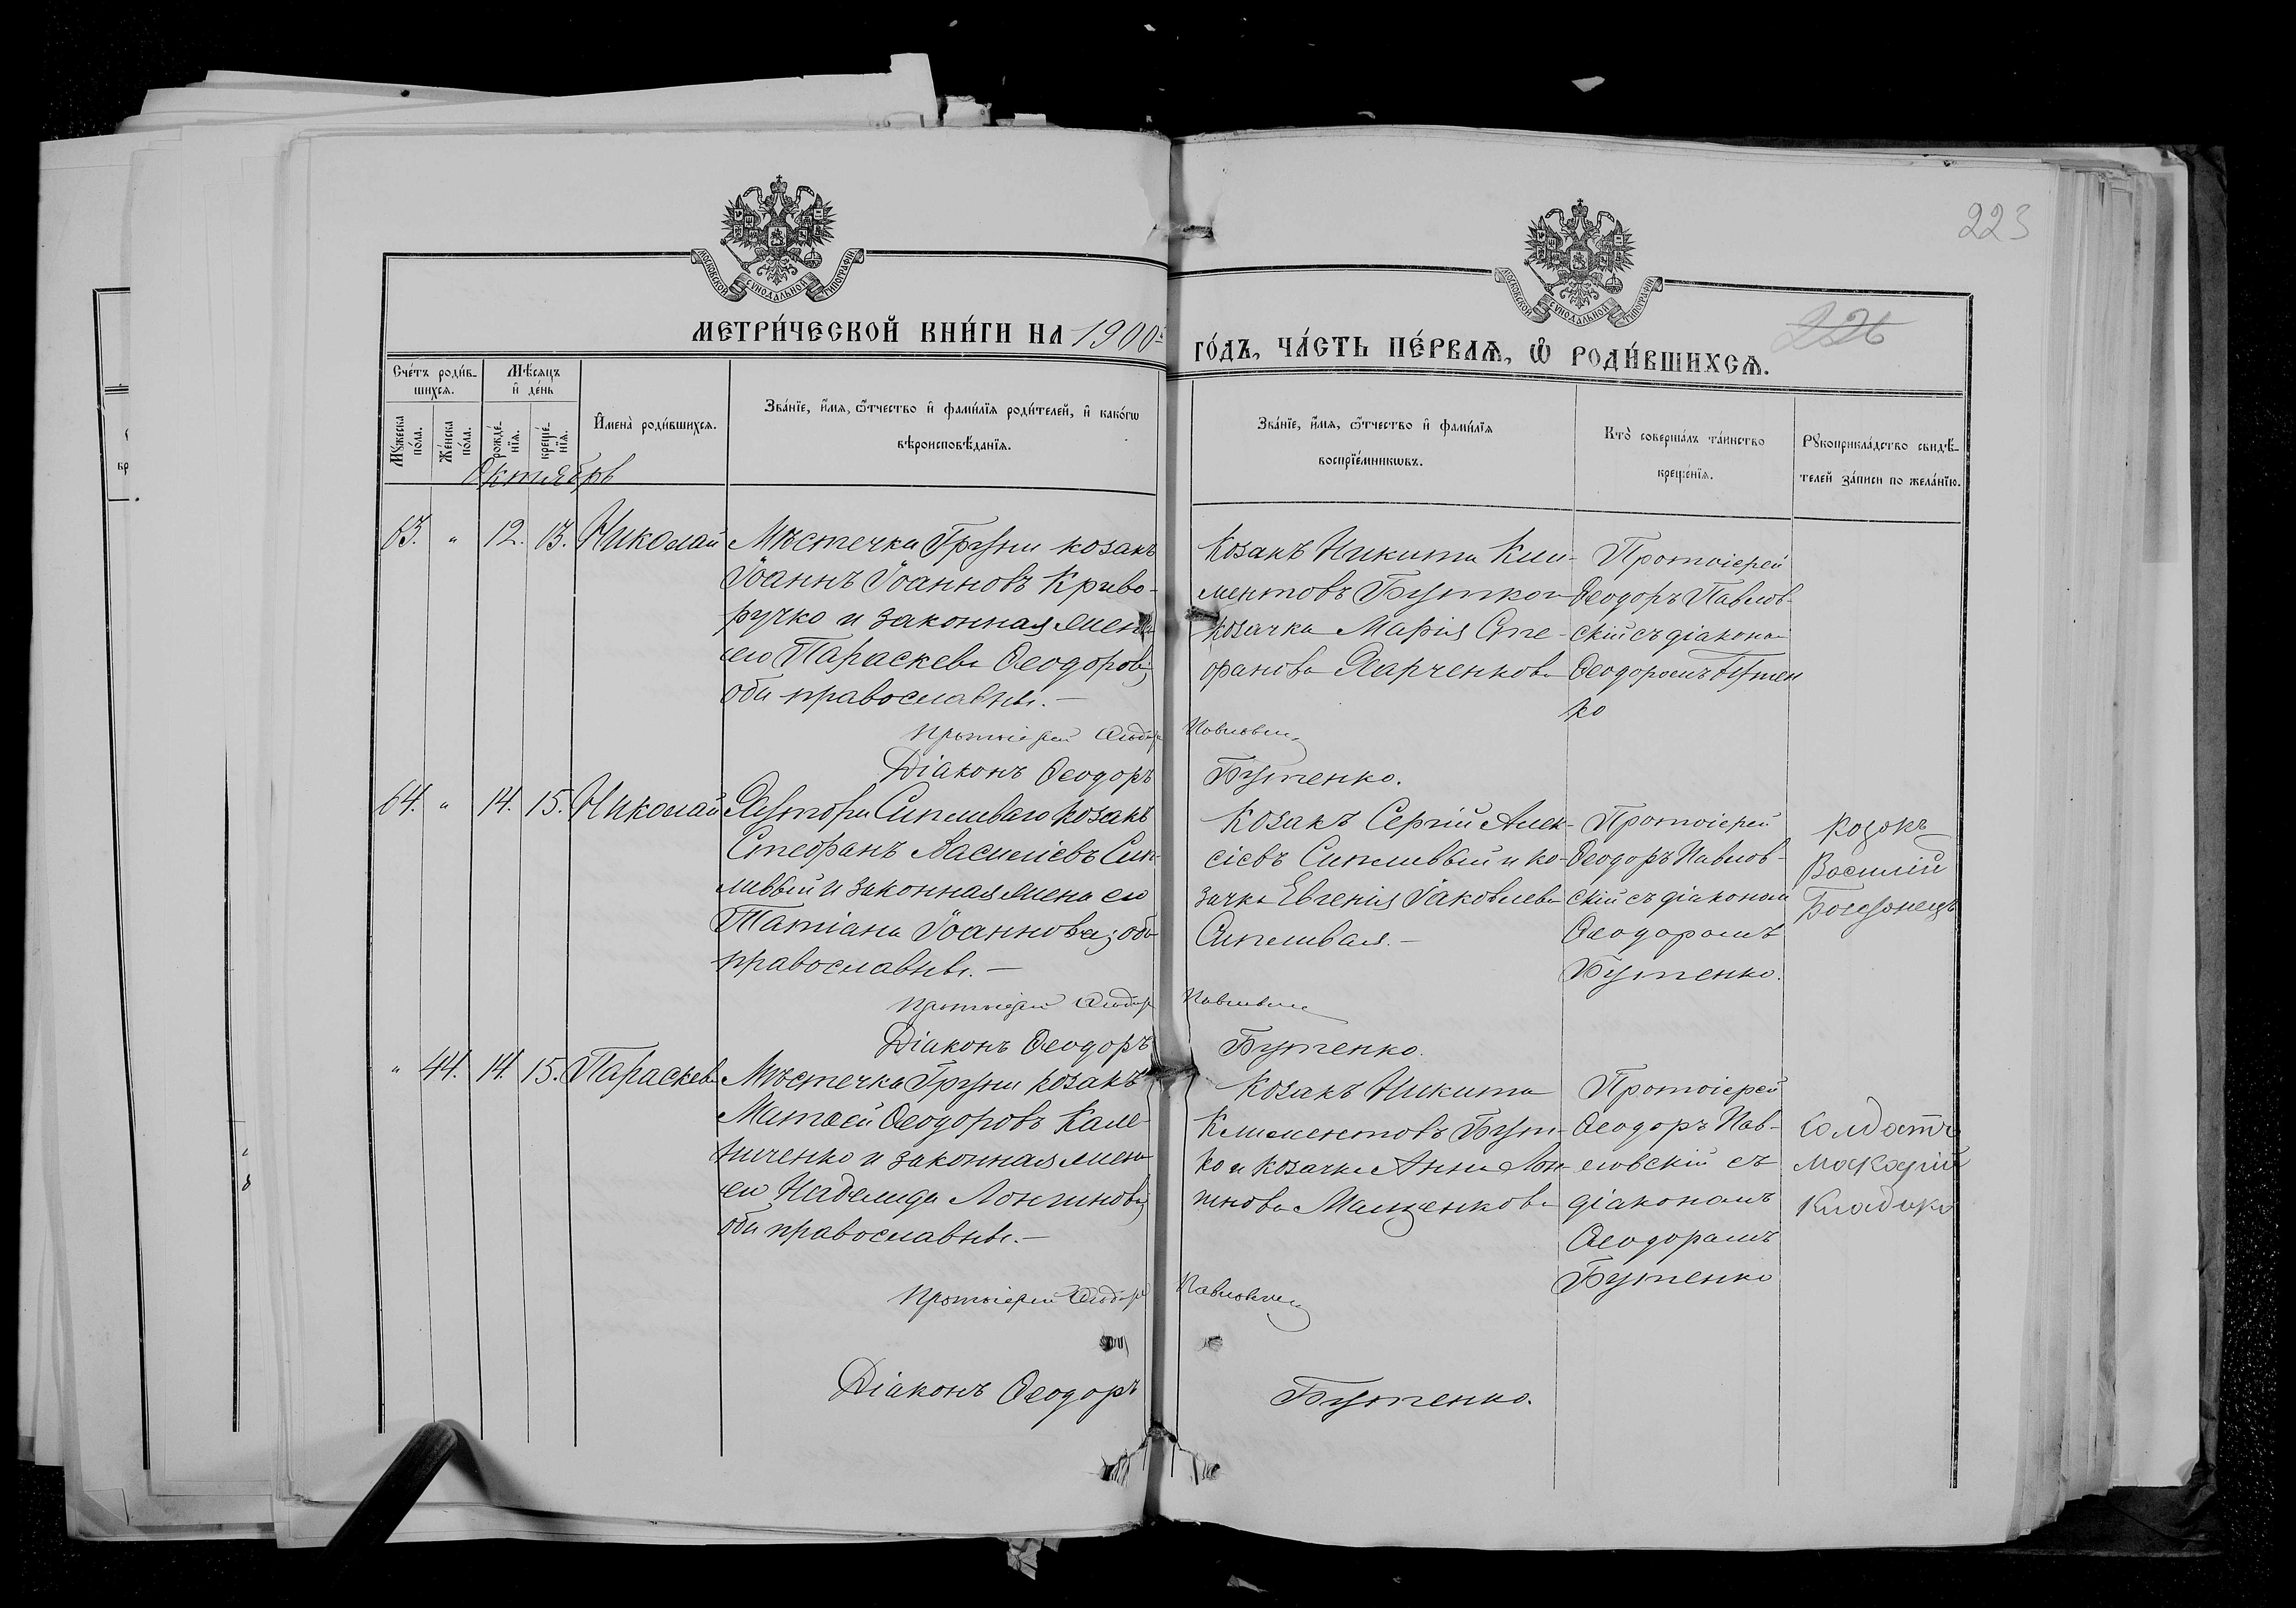 223
226
МОСКОВСКОЙ СѴНОДАЛЬНОЙ ТИПОГРАФІИ
МОСКОВСКОЙ СѴНОДАЛЬНОЙ ТИПОГРАФІИ
МЕТРИ́ЧЕСКОЙ КНИ́ГИ НА 1900й
ГО́ДЪ, ЧА́СТЬ ПЕ́РВАѦ, Ѡ РОДИ́ВШИХСѦ.
Сче́тъ роди́в-
шихсѧ.
Мꙋ́жеска по́ла.
Же́нска по́ла.
Мѣ́сѧцъ и҆ де́нь
рожде́-нїѧ.
креще́-нїѧ.
И҆мена̀ роди́вшихсѧ.
Зва́нїе, и҆́мѧ, ѻ҆́тчество и҆ фами́лїѧ роди́телей, и҆ како́гѡ
вѣроисповѣ́данїѧ.
Зва́нїе, и҆́мѧ, ѻ҆́тчество и҆ фами́лїѧ
воспрїе́мникѡвъ.
Кто̀ соверша́лъ та́инство
креще́нїѧ.
Рꙋкоприкла́дство свидѣ́-
телей за́писи по жела́нїю.
Октябрь
63. " 12. 13. Николай
Мѣстечка Груни козакъ
Іоаннъ Іоанновъ Криво-
ручко и законная жена
его Параскева Ѳеодорова;
оба православные.—
Козакъ Никита Кли-
ментовъ Бутко и
козачка Марія Сте-
фанова Харченкова
Протоіерей
Ѳеодоръ Павлов-
скій съ діакона
Ѳеодоромъ Бутен
ко
Протоіерей Ѳеодоръ Павловскій
Діаконъ Ѳеодоръ Бутенко.
64. " 14. 15. Николай
Хутора Сипливаго козакъ
Стефанъ Василіевъ Сип-
ливый и законная жена его
Татіана Іоаннова; оба
православные.—
Козакъ Сергій Алек-
сіевъ Сипливый и ко-
зачка Евгенія Іаковлева
Сипливая.—
Протоіерей
Ѳеодоръ Павлов-
скій съ діаконом
Ѳеодоромъ
Бутенко.
Козокъ
Василій
Протоіерей Ѳеодоръ Павловскій
Діаконъ Ѳеодоръ Бутенко.
" 44. 14. 15. Параскева
Мѣстечка Груни козакъ
Матѳей Ѳеодоровъ Кале-
ниченко и законная жена
его Надежда Лонгинова;
оба православные.—
Козакъ Никита
Климентовъ Бут-
ко и козачка Анна Лон-
гинова Мащенкова
Протоіерей
Ѳеодоръ Пав-
ловскій съ
діакономъ
Ѳеодоромъ
Бутенко
Солдатъ
Протоіерей Ѳеодоръ Павловскій
Діаконъ Ѳеодоръ Бутенко.